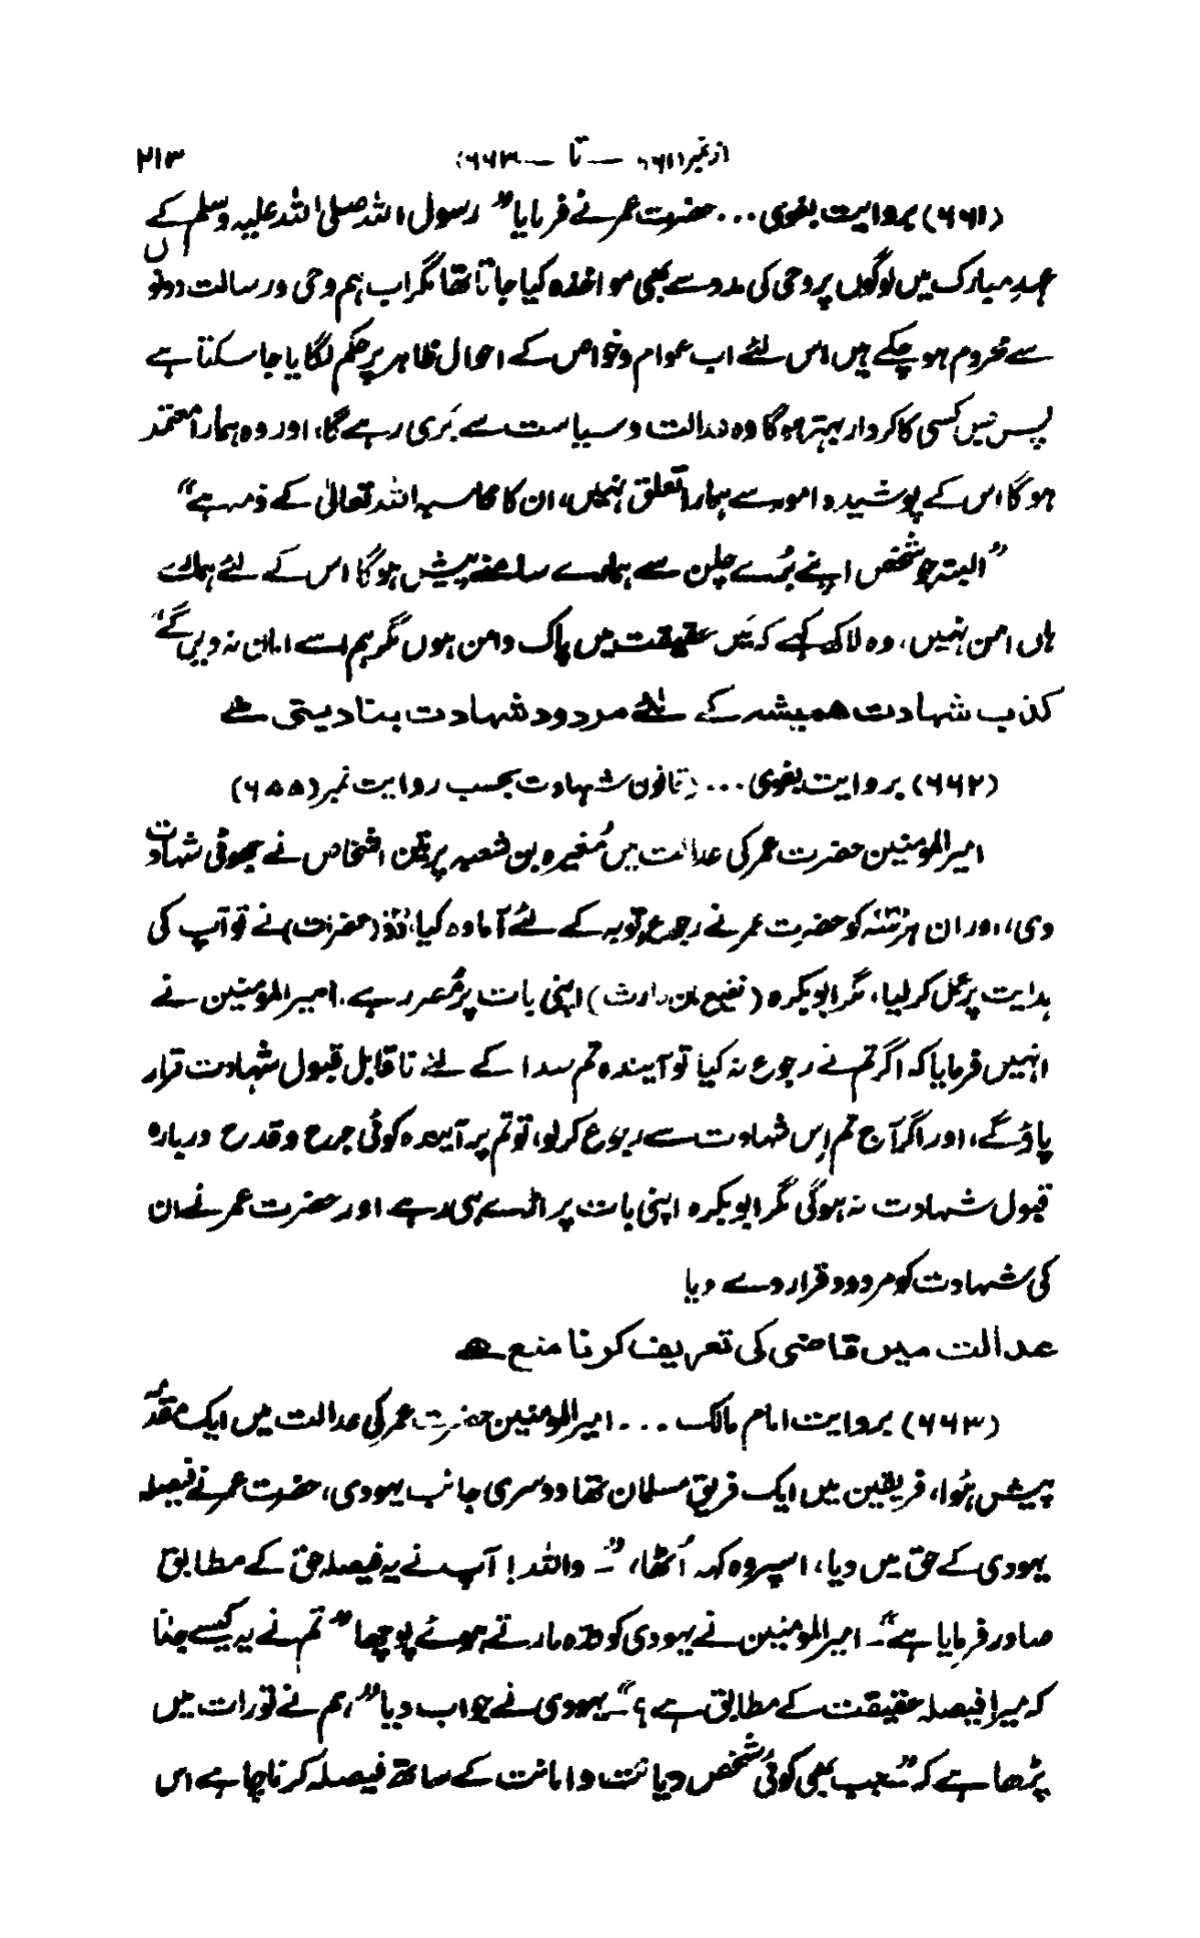 از نمبر (۶۶۱) — تا — (۶۶۳) ۲۱۳
(۶۶۱) بروایت بغوی ... حضرت عمر نے فرمایا ”رسول اللہ صلی اللہ علیہ وسلم کے
عہدِ مبارک میں لوگوں پر وحی کی مدد سے بھی مواخذہ کیا جاتا تھا مگر اب ہم وحی ورسالت دونوں
سے محروم ہو چکے ہیں اس لئے اب عوام وخواص کے احوال ظاہر پر حکم لگایا جا سکتا ہے
پس جس کسی کا کردار بہتر ہوگا وہ عدالت و سیاست سے بَری رہے گا، اور وہ ہمارا معتمد
ہوگا اس کے پوشیدہ امور سے ہمارا تعلق نہیں، ان کا محاسبہ اللہ تعالیٰ کے ذمہ ہے“
”البتہ جو شخص اپنے بُرے چلن سے ہمارے سامنے پیش ہوگا اس کے لئے ہمارے
ہاں امن نہیں، وہ لاکھ کہے کہ مَیں حقیقت میں پاک دامن ہوں مگر ہم اسے امان نہ دیں گے“
کذب شہادت ہمیشہ کے لئے مردود شہادت بنا دیتی ہے
(۶۶۲) بروایت بغوی ... (قانون شہادت بحسب روایت نمبر (۶۵۵)
امیرالمومنین حضرت عمر کی عدالت میں مُغیرہ بن شعبہ پر تین اشخاص نے جھوٹی شہادت
دی، اور ان ہر سَہ کو حضرت عمر نے رجوع و توبہ کے لئے آمادہ کیا، دو (حضرات) نے تو آپ کی
ہدایت پر عمل کر لیا، مگر ابوبکرہ (نفیع بن حارث) اپنی بات پر مُصر رہے۔ امیرالمومنین نے
انہیں فرمایا کہ اگر تم نے رجوع نہ کیا تو آیندہ تم سدا کے لئے ناقابل قبول شہادت قرار
پاؤ گے، اور اگر آج تم اِس شہادت سے رجوع کر لو، تو تم پر آیندہ کوئی جرح وقدح دربارہ
قبول شہادت نہ ہوگی مگر ابوبکرہ اپنی بات پر اڑے ہی رہے اور حضرت عمر نے ان
کی شہادت کو مردود قرار دے دیا
عدالت میں قاضی کی تعریف کرنا منع ہے
(۶۶۳) بروایت امام مالک ... امیرالمومنین حضرت عمر کی عدالت میں ایک مقدمہ
پیش ہُوا، فریقین میں ایک فریق مسلمان تھا دوسری جانب یہودی، حضرت عمر نے فیصلہ
یہودی کے حق میں دیا، اسپر وہ کہہ اُٹھا، ”۔ واللہ! آپ نے یہ فیصلہ حق کے مطابق
صادر فرمایا ہے“۔ امیرالمومنین نے یہودی کو درّہ مارتے ہوئے پوچھا ”تم نے یہ کیسے جانا
کہ میرا فیصلہ حقیقت کے مطابق ہے؟“۔ یہودی نے جواب دیا ”ہم نے تورات میں
پڑھا ہے کہ ”جب بھی کوئی شخص دیانت وامانت کے ساتھ فیصلہ کرنا چاہے اس